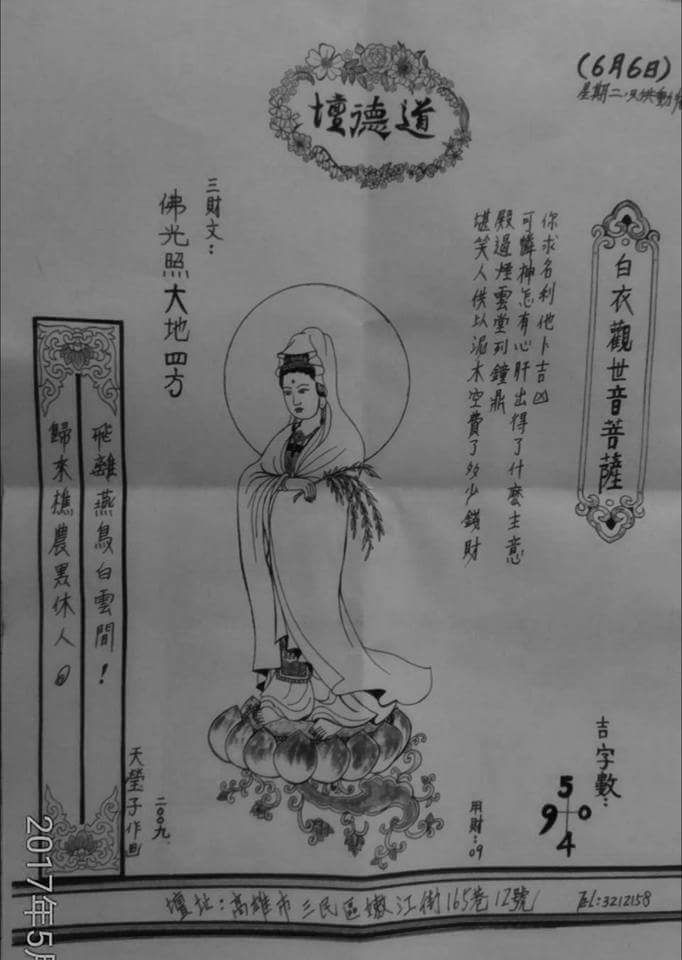 (6月6日)
道德壇
白衣觀世音菩薩
你求名利他卜吉凶
可憐神怎有心肝出得了什麼主意
殿過煙雲堂列鐘鼎
堪笑人供以泥木空費了多少錢財
三財文:
佛光照大地四方
飛離燕鳥白雲間!
歸來樵農異休人。
天瑩子作
二〇〇九
吉字數:
5
9 0
4
用財:09
壇址:高雄市三民區嫩江街165巷12號
Tel:3212158
2017年5月